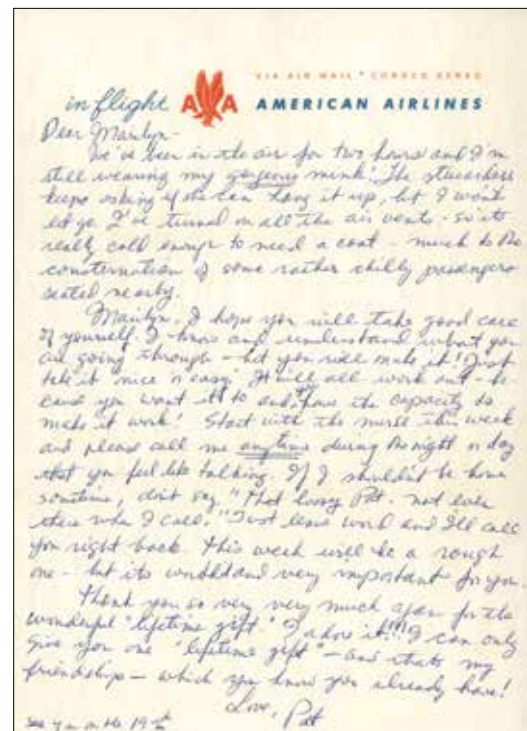 VIA AIR MAIL * CORREO AEREO
in flight AA AMERICAN AIRLINES
Dear Marilyn -
We've been in the air for two hours and I'm
still wearing my gorgeous mink! The stewardess
keeps asking if she can hang it up, but I won't
let go. I've turned on all the air vents - so its
really cold enough to need a coat - much to the
consternation of some rather chilly passengers
seated nearby.
Marilyn, I hope you will take good care
of yourself. I know and understand what you
are going through - but you will make it! Just
take it nice 'n easy. It will all work out - be-
cause you want it to and have the capacity to
make it work! Start with the nurse this week
and please call me anytime during the night or day
that you feel like talking. If I shouldn't be home
sometime, don't say "That lousy Pat - not even
there when I call." Just leave word and I'll call
you right back. This week will be a rough
one - but its and very important for you.
Thank you so very very much again for the
wonderful "lifetime gift." I adore it!!!! I can only
give you one "lifetime gift" - and thats my
friendship - which you know you already have!
Love, Pat
see you on the 19th